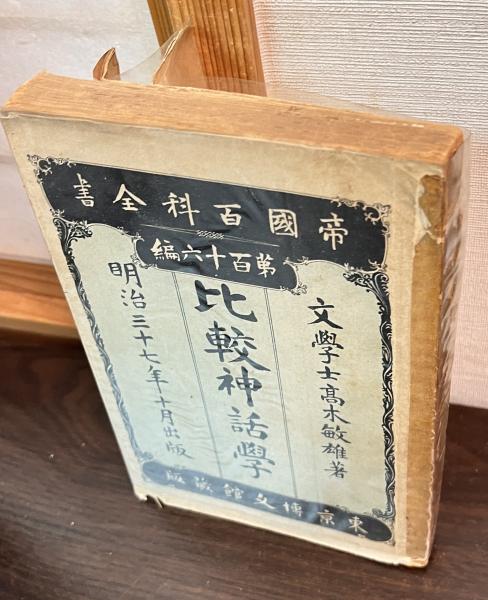 帝國百科全書
第百十六編
文學士高木敏雄著
比較神話學
明治三十七年十月出版
東京博文館蔵版